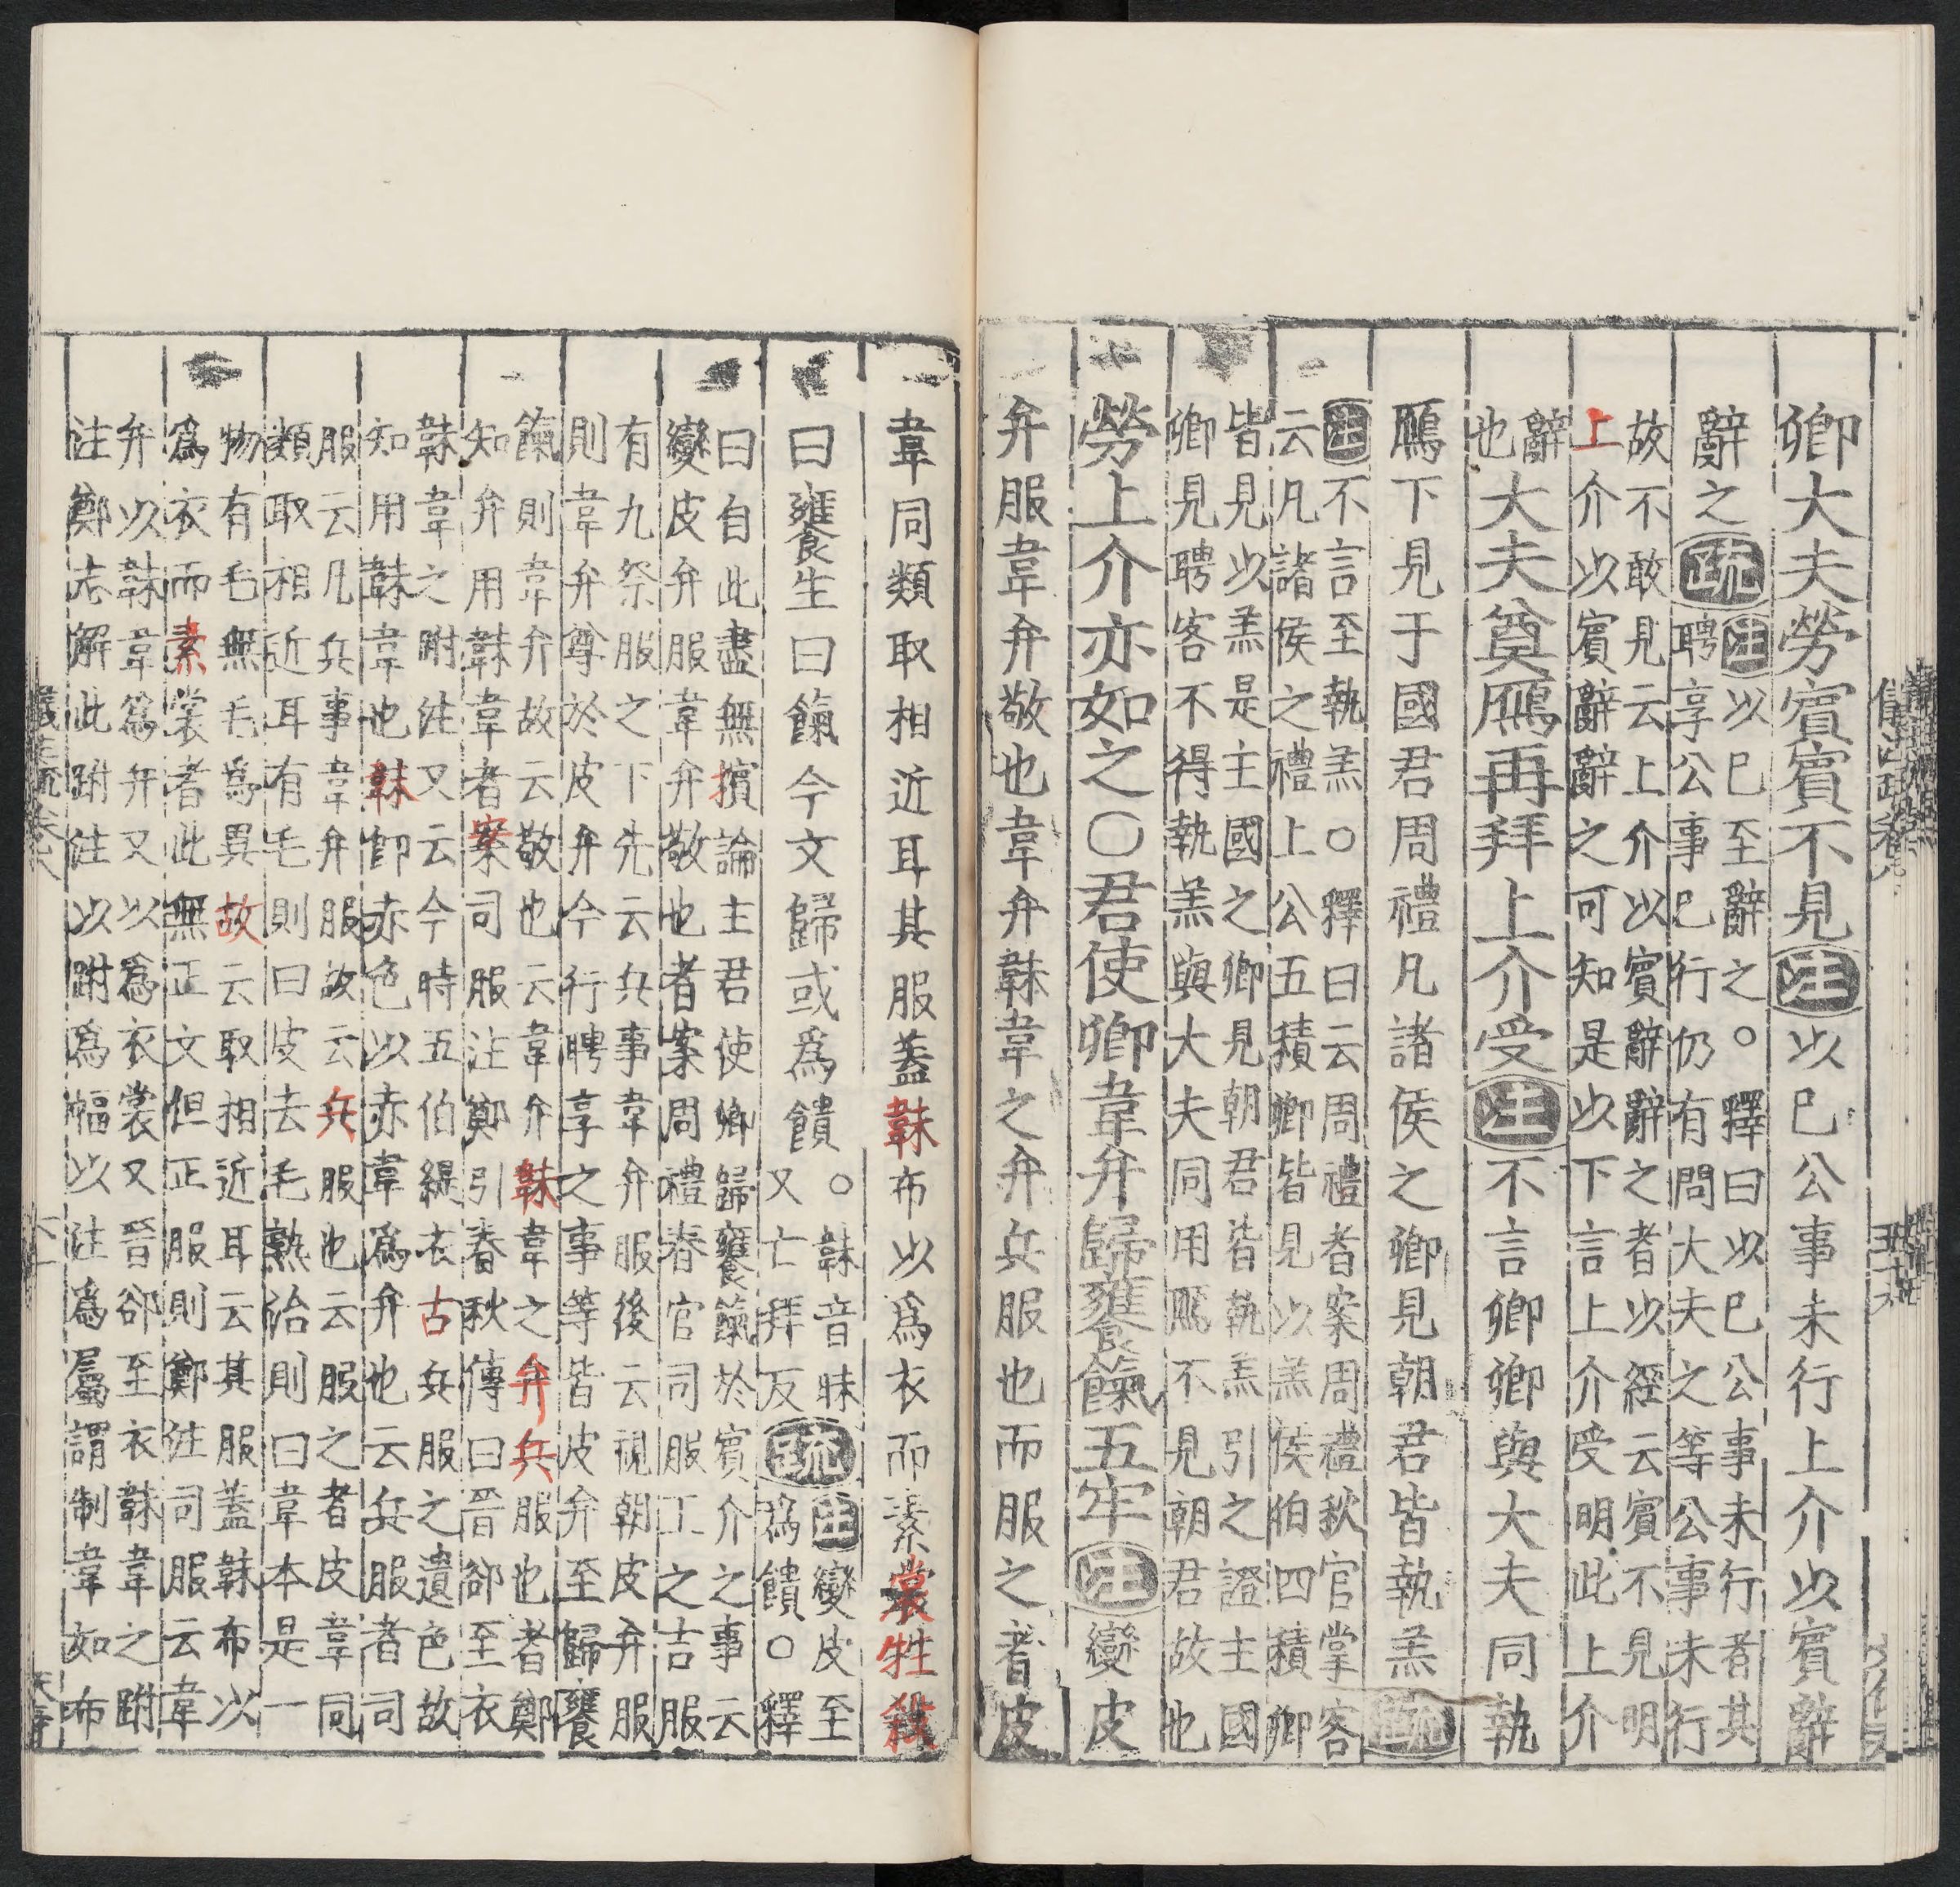 卿大夫勞賓賓不見注以已公事未行上介以賓辭
辭之疏注以已至辭之。釋曰以已公事未行者其
聘享公事已行仍有問大夫之等公事未行
故不敢見云上介以賓辭辭之者以經云賓不見明
上介以賓辭辭之可知是以下言上介受明此上介
辭也大夫奠鴈再拜上介受注不言卿卿與大夫同執
鴈下見于國君周禮凡諸侯之卿見朝君皆執羔疏
注不言至執羔○釋曰云周禮者案周禮秋官掌客
云凡諸侯之禮上公五積卿皆見以羔侯伯四積卿
皆見以羔是主國之卿見朝君皆執羔引之證主國
卿見聘客不得執羔與大夫同用鴈不見朝君故也
勞上介亦如之○君使卿韋弁歸饔餼五牢注變皮
弁服韋弁敬也韋弁韎韋之弁兵服也而服之者皮
韋同類取相近耳其服蓋韎布以爲衣而素裳牲殺
曰饔生曰餼今文歸或爲饋○韎音昧又亡拜反疏注變皮至
爲饋○釋
曰自此盡無擯論主君使卿歸饔餼於賓介之事云
變皮弁服韋弁敬也者案周禮春官司服王之吉服
有九祭服之下先云兵事韋弁服後云視朝皮弁服
則韋弁尊於皮弁今行聘享之事等皆皮弁至歸饔
餼則韋弁故云敬也云韋弁韎韋之弁兵服也者鄭
知弁用韎韋者案司服注鄭引春秋傳曰晉郤至衣
韎韋之跗注又云今時五伯緹衣古兵服之遺色故
知用韎韋也韎卽赤色以赤韋爲弁也云兵服者司
服云凡兵事韋弁服故云兵服也云服之者皮韋同
類取相近耳有毛則曰皮去毛熟治則曰韋本是一
物有毛無毛爲異故云取相近耳云其服蓋韎布以
爲衣而素裳者此無正文但正服則鄭注司服云韋
弁以韎韋爲弁又以爲衣裳又晉郤至衣韎韋之跗
注鄭志解此跗注以跗爲幅以注爲屬謂制韋如布